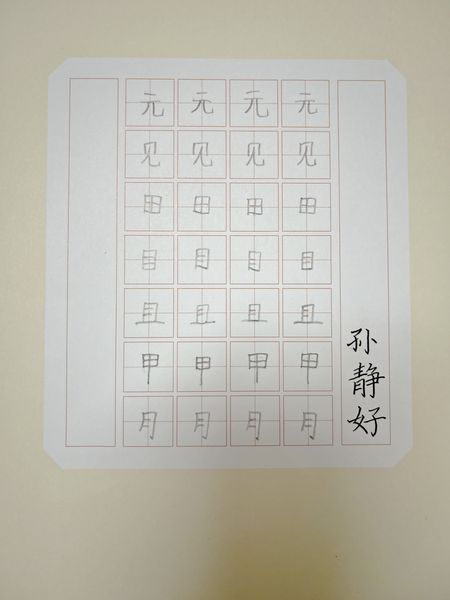 元 元 元 元
见 见 见 见
田 田 田 田
目 目 目 目
且 且 且 且
甲 甲 甲 甲
月 月 月 月
孙静好